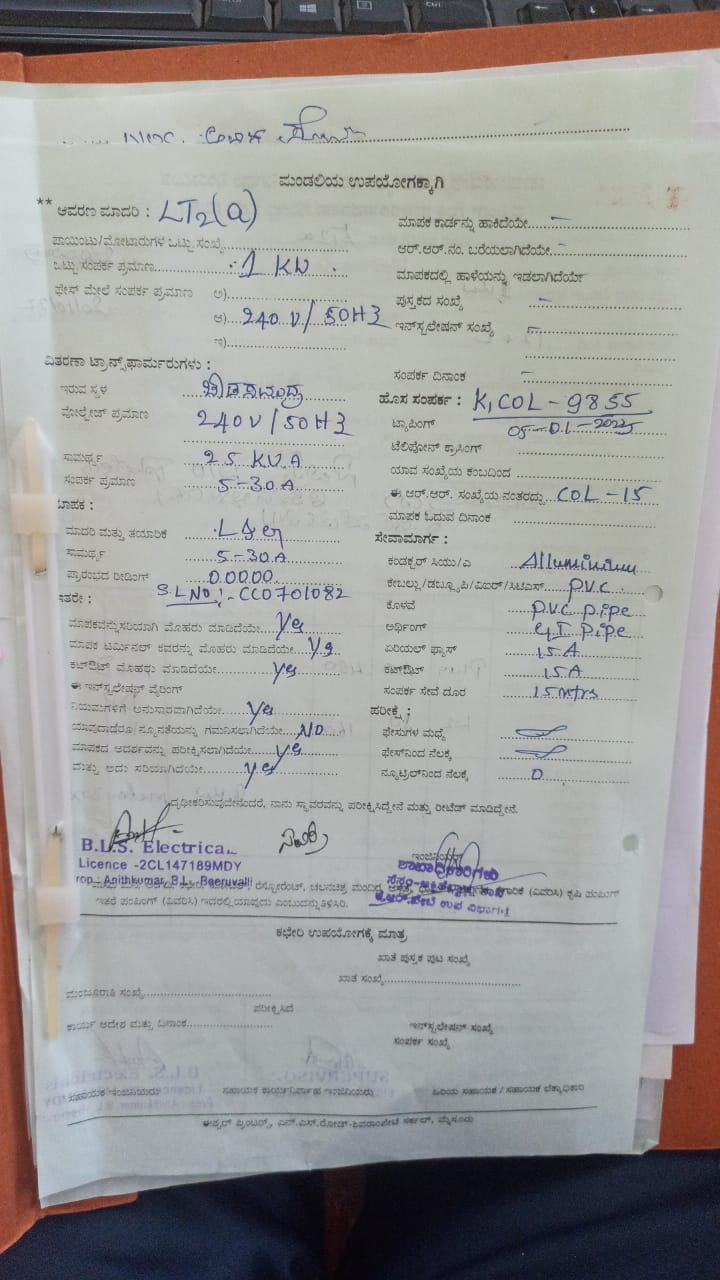 ಮಂಡಲಿಯ ಉಪಯೋಗಕ್ಕಾಗಿ
** ಆವರಣ ಮಾದರಿ : LT2(a)
ಪಾಯಿಂಟು/ಮೋಟಾರುಗಳ ಒಟ್ಟು ಸಂಖ್ಯೆ
ಒಟ್ಟು ಸಂಪರ್ಕ ಪ್ರಮಾಣ 1 KW
ಫೇಸ್ ಮೇಲೆ ಸಂಪರ್ಕ ಪ್ರಮಾಣ ಅ)
ಆ) 240 V/50HZ
ಇ)
ವಿತರಣಾ ಟ್ರಾನ್ಸ್‌ಫಾರ್ಮರುಗಳು :
ಇರುವ ಸ್ಥಳ
ವೋಲ್ಟೇಜ್ ಪ್ರಮಾಣ 240V/50HZ
ಸಾಮರ್ಥ್ಯ 25 KVA
ಸಂಪರ್ಕ ಪ್ರಮಾಣ 5-30A
ಮಾಪಕ :
ಮಾದರಿ ಮತ್ತು ತಯಾರಿಕೆ
ಸಾಮರ್ಥ್ಯ 5-30A
ಪ್ರಾರಂಭದ ರೀಡಿಂಗ್ 00000
ಇತರೇ : S.L No:- CC0701082
ಮಾಪಕವನ್ನು ಸರಿಯಾಗಿ ಮೊಹರು ಮಾಡಿದೆಯೇ Yes
ಮಾಪಕ ಟರ್ಮಿನಲ್ ಕವರನ್ನು ಮೊಹರು ಮಾಡಿದೆಯೇ Yes
ಕಟ್‌ಔಟ್ ಮೊಹರು ಮಾಡಿದೆಯೇ Yes
ಈ ಇನ್‌ಸ್ಟಲೇಷನ್ ವೈರಿಂಗ್
ನಿಯಮಗಳಿಗೆ ಅನುಸಾರವಾಗಿದೆಯೇ Yes
ಯಾವುದಾದರೂ ನ್ಯೂನತೆಯನ್ನು ಗಮನಿಸಲಾಗಿದೆಯೇ NO
ಮಾಪಕದ ಆದರ್ಶವನ್ನು ಪರೀಕ್ಷಿಸಲಾಗಿದೆಯೇ Yes
ಮತ್ತು ಅದು ಸರಿಯಾಗಿದೆಯೇ Yes
ಮಾಪಕ ಕಾರ್ಡನ್ನು ಹಾಕಿದೆಯೇ -
ಆರ್.ಆರ್.ನಂ. ಬರೆಯಲಾಗಿದೆಯೇ -
ಮಾಪಕದಲ್ಲಿ ಹಾಳೆಯನ್ನು ಇಡಲಾಗಿದೆಯೇ
ಪುಸ್ತಕದ ಸಂಖ್ಯೆ -
ಇನ್‌ಸ್ಟಲೇಷನ್ ಸಂಖ್ಯೆ -
ಸಂಪರ್ಕ ದಿನಾಂಕ -
ಹೊಸ ಸಂಪರ್ಕ : K, COL - 9855
ಟ್ಯಾಪಿಂಗ್
ಟೆಲಿಫೋನ್ ಕ್ರಾಸಿಂಗ್
ಯಾವ ಸಂಖ್ಯೆಯ ಕಂಬದಿಂದ
ಈ ಆರ್.ಆರ್. ಸಂಖ್ಯೆಯ ನಂತರದ್ದು COL - 15
ಮಾಪಕ ಓದುವ ದಿನಾಂಕ
ಸೇವಾಮಾರ್ಗ :
ಕಂಡಕ್ಟರ್ ಸಿಯು/ಎ Alluminium
ಕೇಬಲ್ಲು/ಡಬ್ಲ್ಯೂಪಿ/ವಿಐಆರ್/ಸಿಟಿಎಸ್ P.V.C
ಕೊಳವೆ P.V.C pipe
ಅರ್ಥಿಂಗ್ GI Pipe
ಏರಿಯಲ್ ಫ್ಯೂಸ್ 15A
ಕಟ್‌ಔಟ್ 15A
ಸಂಪರ್ಕ ಸೇವೆ ದೂರ 15mtrs
ಪರೀಕ್ಷೆ :
ಫೇಸುಗಳ ಮಧ್ಯೆ
ಫೇಸ್‌ನಿಂದ ನೆಲಕ್ಕೆ
ನ್ಯೂಟ್ರಲ್‌ನಿಂದ ನೆಲಕ್ಕೆ 0
ದೃಢೀಕರಿಸುವುದೇನೆಂದರೆ, ನಾನು ಸ್ಥಾವರವನ್ನು ಪರೀಕ್ಷಿಸಿದ್ದೇನೆ ಮತ್ತು ರೀಟೆಡ್ ಮಾಡಿದ್ದೇನೆ.
B.L.S. Electrica
Licence -2CL147189MDY
rop : Anithkumar. B.L - Beeruvalli
ಇಂಜಿನಿಯರ್
ಶಾಖಾಧಿಕಾರಿಗಳು
ಇತರೆ ಪಂಪಿಂಗ್ (ವಿವರಿಸಿ) ಇದರಲ್ಲಿ ಯಾವುದು ಎಂಬುದನ್ನು ತಿಳಿಸಿರಿ.
ಕಛೇರಿ ಉಪಯೋಗಕ್ಕೆ ಮಾತ್ರ
ಖಾತೆ ಪುಸ್ತಕ ಪುಟ ಸಂಖ್ಯೆ
ಖಾತೆ ಸಂಖ್ಯೆ
ಮಂಜೂರಾತಿ ಸಂಖ್ಯೆ
ಪರೀಕ್ಷಿಸಿದೆ
ಕಾರ್ಯ ಆದೇಶ ಮತ್ತು ದಿನಾಂಕ
ಇನ್‌ಸ್ಟಲೇಷನ್ ಸಂಖ್ಯೆ
ಸಂಪರ್ಕ ಸಂಖ್ಯೆ
ಸಹಾಯಕ ಇಂಜಿನಿಯರು ಸಹಾಯಕ ಕಾರ್ಯನಿರ್ವಾಹಕ ಇಂಜಿನಿಯರು ಹಿರಿಯ ಸಹಾಯಕ / ಸಹಾಯಕ ಲೆಕ್ಕಾಧಿಕಾರಿ
ಈಶ್ವರ್ ಪ್ರಿಂಟರ್ಸ್, ಎನ್.ಎಸ್.ರೋಡ್-ಶಿವರಾಂಪೇಟೆ ಸರ್ಕಲ್, ಮೈಸೂರು